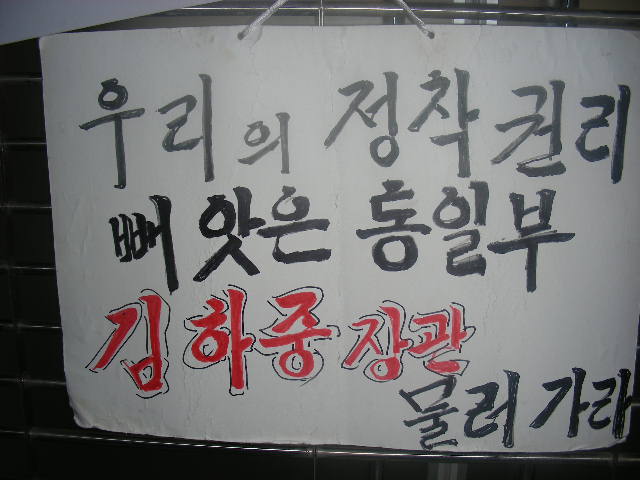 우리의 정착권리
빼앗은 통일부
김하중 장관
물러가라